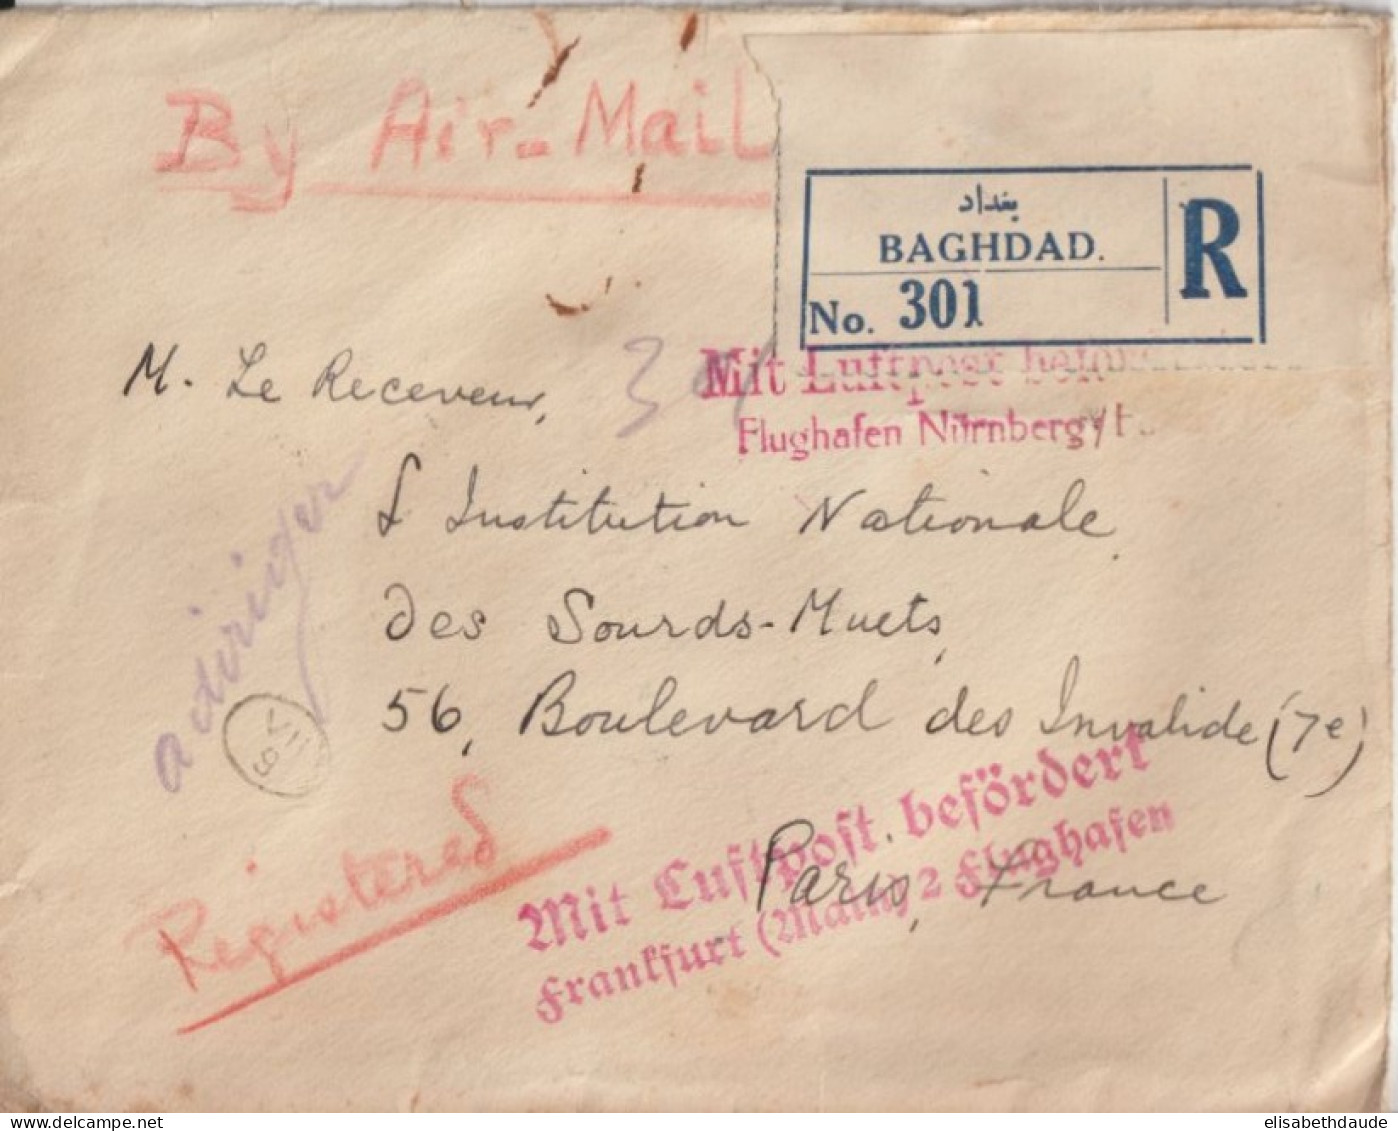 By Air-Mail
بغداد
BAGHDAD.
R
No. 301
M. Le Receveur,
Mit Luftpost
Flughafen Nürnberg
L'Institution Nationale
des Sourds-Muets,
56, Boulevard des Invalide (7e)
a diriger
VII
Paris, France
Registered
Mit Luftpost befördert
Frankfurt (Main) 2 Flughafen
elisabethdaude